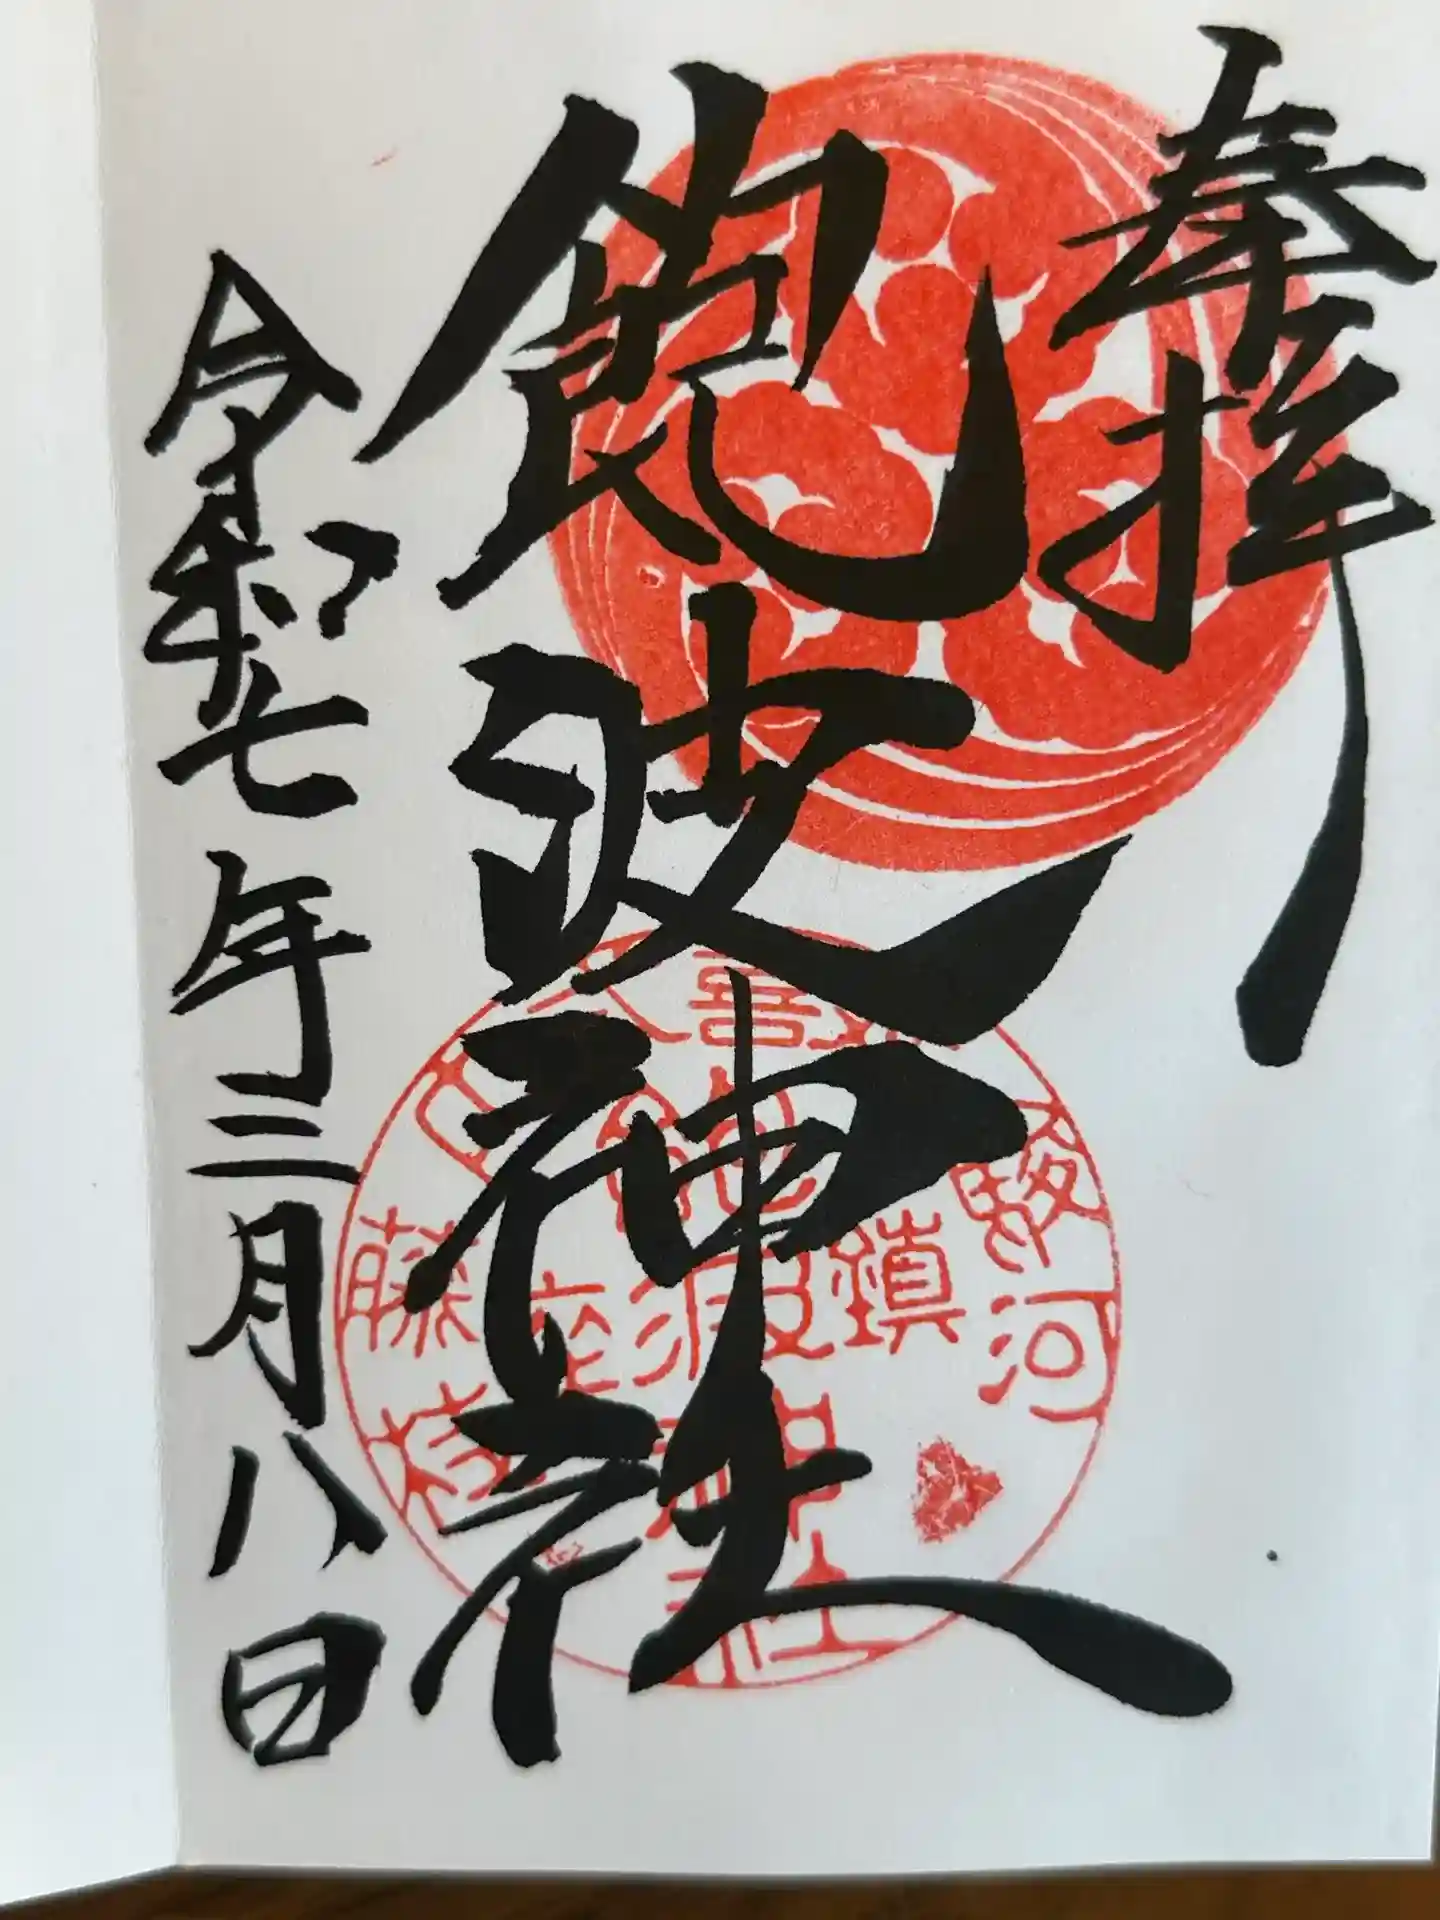 奉拝
飽波神社
令和七年三月八日
駿河
鎮座
藤枝